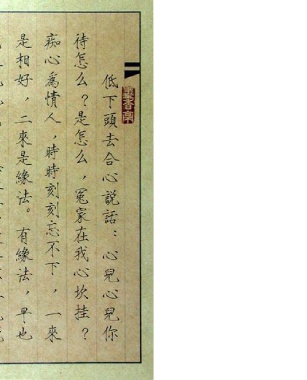 低下頭去合心說話：心兒心兒你
待怎么？是怎么，冤家在我心坎挂？
痴心爲情人，時時刻刻忘不下，一來
是相好，二來是緣法。有緣法，早也